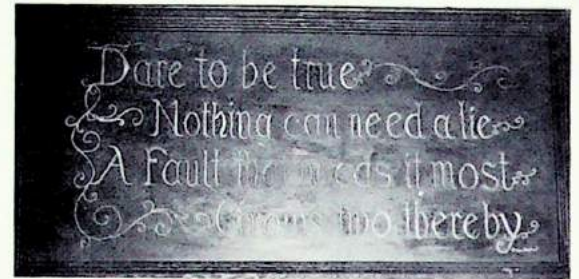 Dare to be true
Nothing can need a lie
A Fault needs it most
Grows two thereby